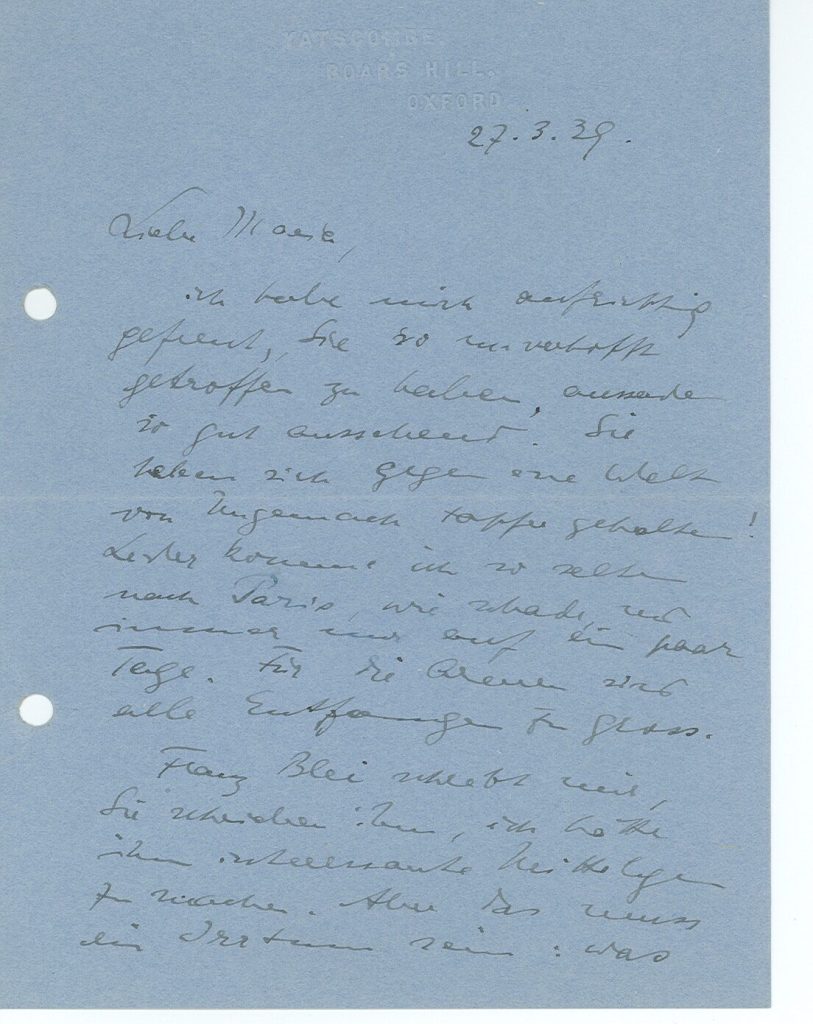 YATSCOMBE.
BOARS HILL.
OXFORD
27. 3. 39.
Liebe Maria,
ich habe mich aufrichtig
gefreut, Sie so unverhofft
getroffen zu haben,
so gut aussehend. Sie
haben sich gegen eine Welt
von Ungemach tapfer gehalten!
Leider komme ich so selten
nach Paris, wie schade, und
immer nur auf ein paar
Tage. Für die Armen sind
alle Entfernungen zu gross.
Franz Blei schreibt mir,
Sie schrieben ihm, ich hätte
ihm interessante Mitteilungen
zu machen. Aber das muss
ein Irrtum sein: was